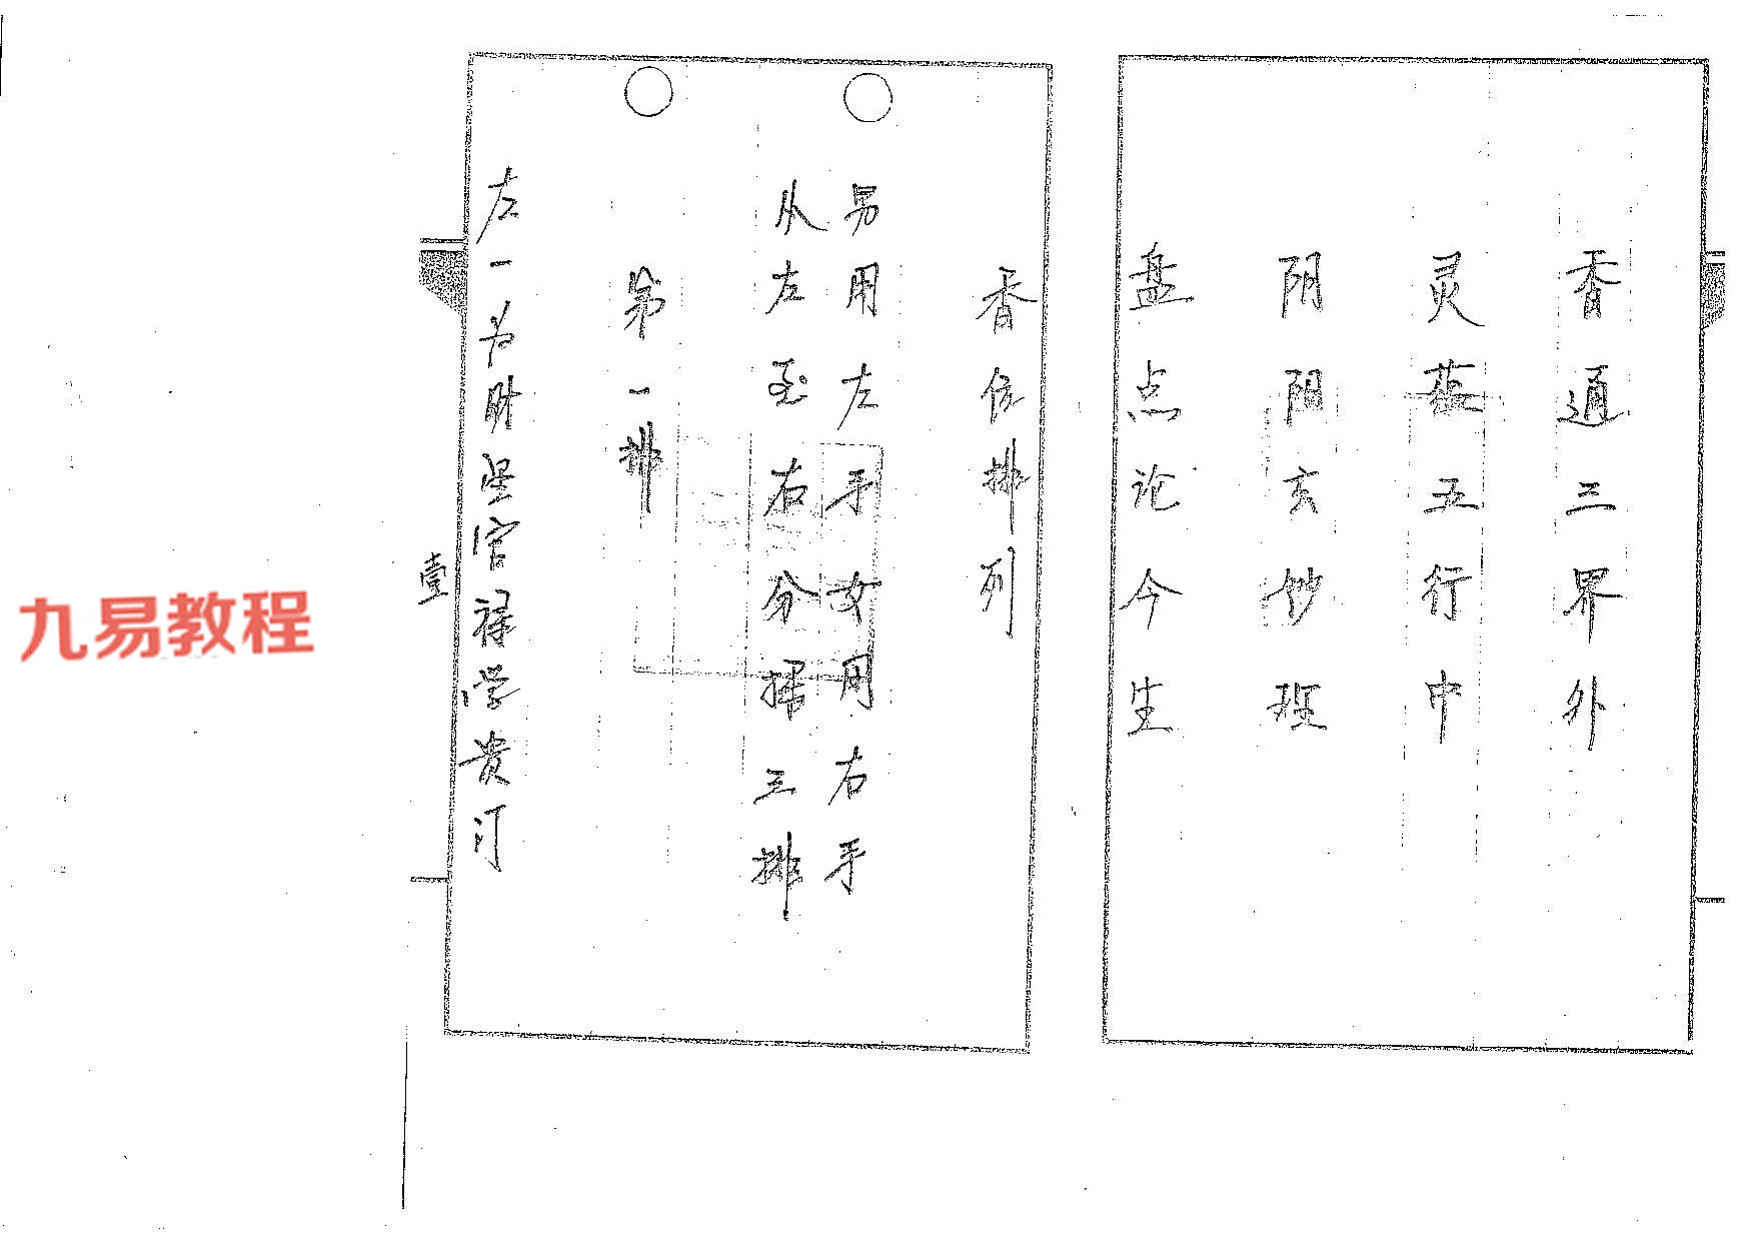 香通三界外
灵蕴五行中
阴阳玄妙理
盘点论今生
香位排列
男用左手女用右手
从左至右分排三排
第一排
左一为财 官禄学贵
壹
九易教程